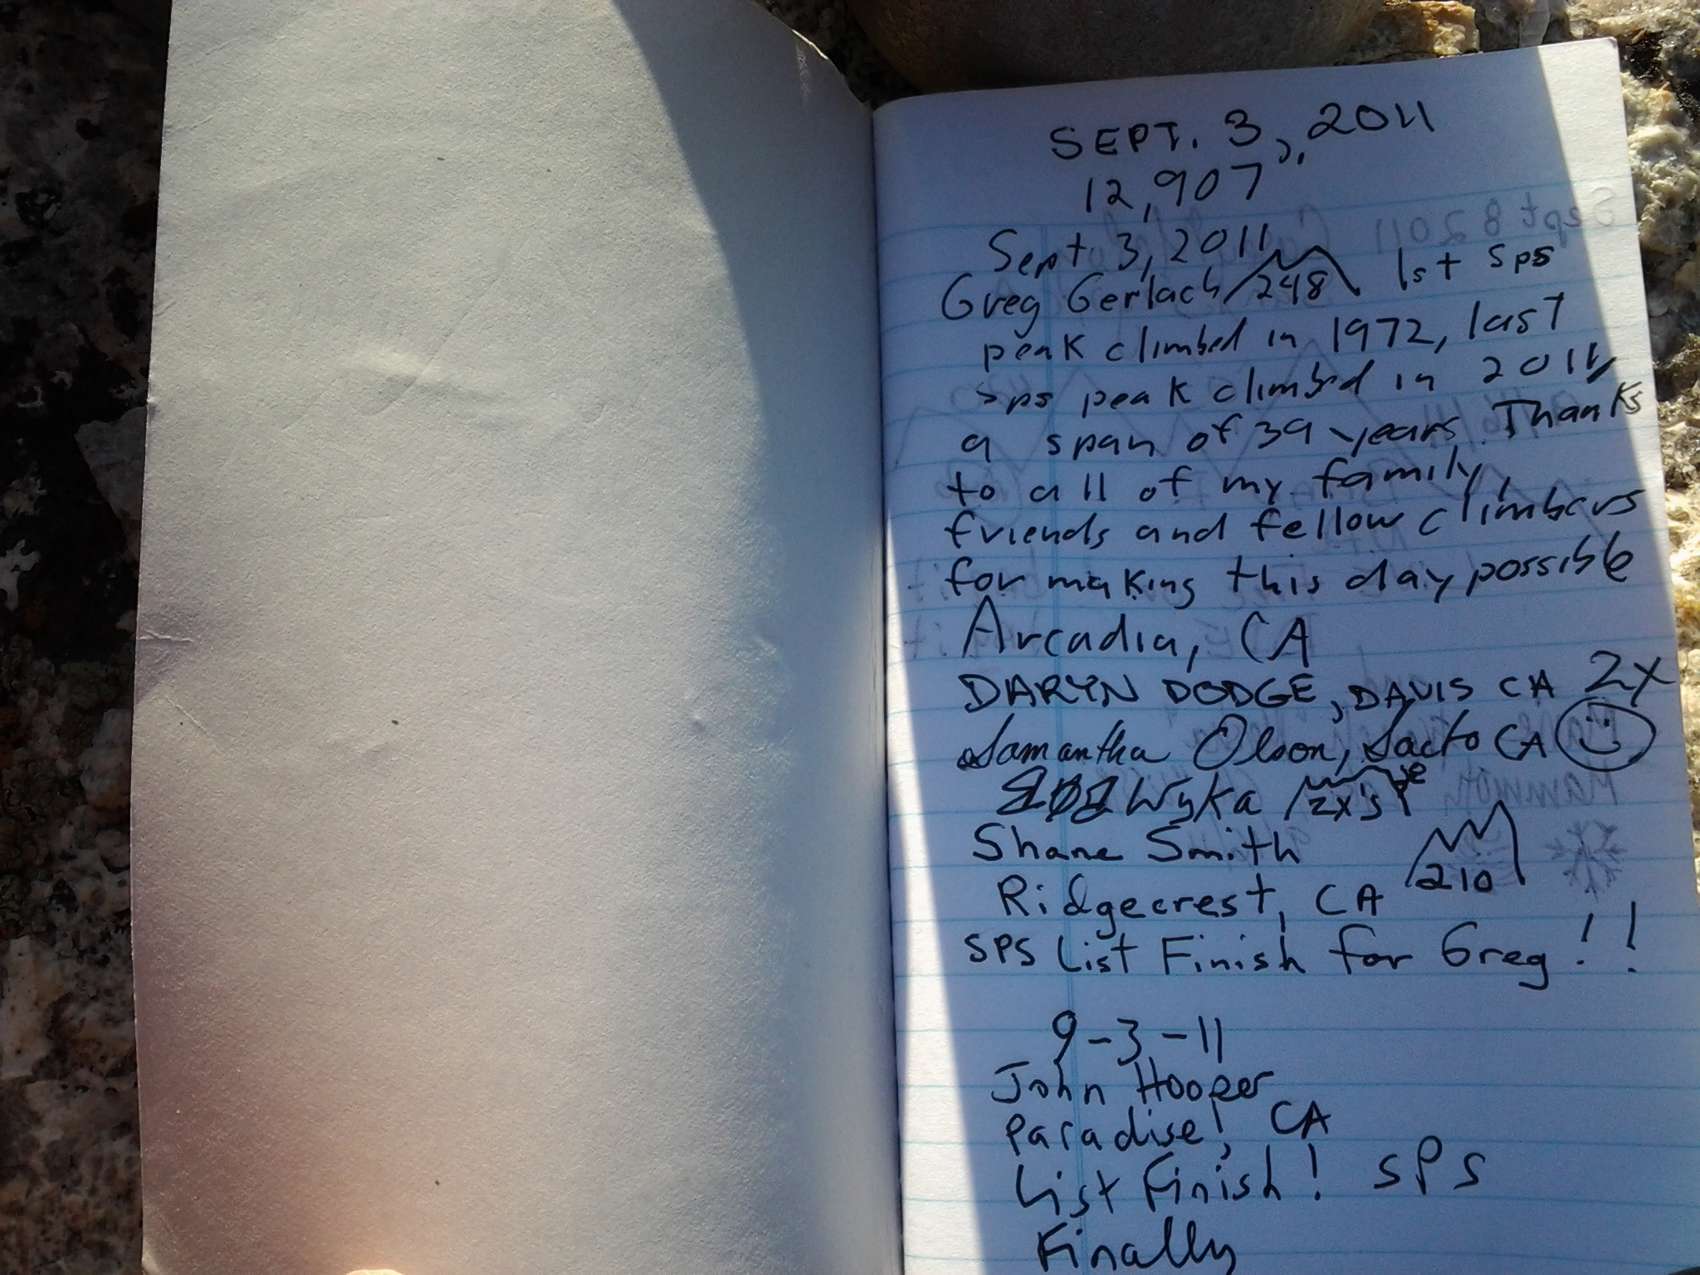 SEPT. 3, 2011
12,907'
Sept 3, 2011
Greg Gerlach 248 1st sps
peak climbed in 1972, last
sps peak climbed in 2011,
a span of 39 years. Thanks
to all of my family,
friends and fellow climbers
for making this day possible
Arcadia, CA
DARYN DODGE, DAVIS CA 2x
Samantha Olson, Sacto CA
Wyka 2x's
Shane Smith
210
Ridgecrest, CA
SPS List Finish for Greg!!
9-3-11
John Hooper
Paradise!, CA
List Finish! SPS
Finally